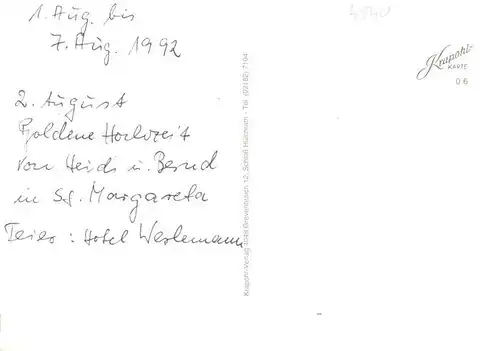 1. Aug. bis
7. Aug. 1992
2. August
Goldene Hochzeit
von Heidi u. Bernd
in St. Margareta
Feier: Hotel Westemann
Krapohl-Verlag 4048 Grevenbroich 12, Schloß Hülchrath · Tel. (02182) 7164
Krapohl-
KARTE
06